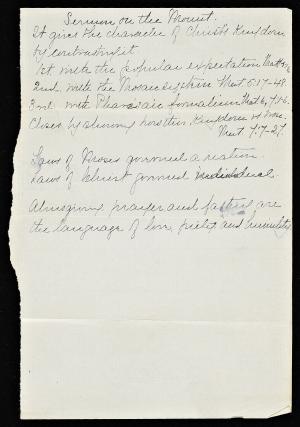 Sermon on the Mount.
It gives the character of Christ's Kingdom
by contrasting it
1st with the popular expectation Matt
2nd. with the Mosaic system Matt 5:17-48.
3rd. with Pharasaic formalism Matt 6, 7:1-6.
Closes by showing how this Kingdom is
Matt. 7:7-27.
Laws of Moses governed a nation.
Laws of Christ governed individual
Almsgiving prayer and fasting are
the language of love, piety and humility